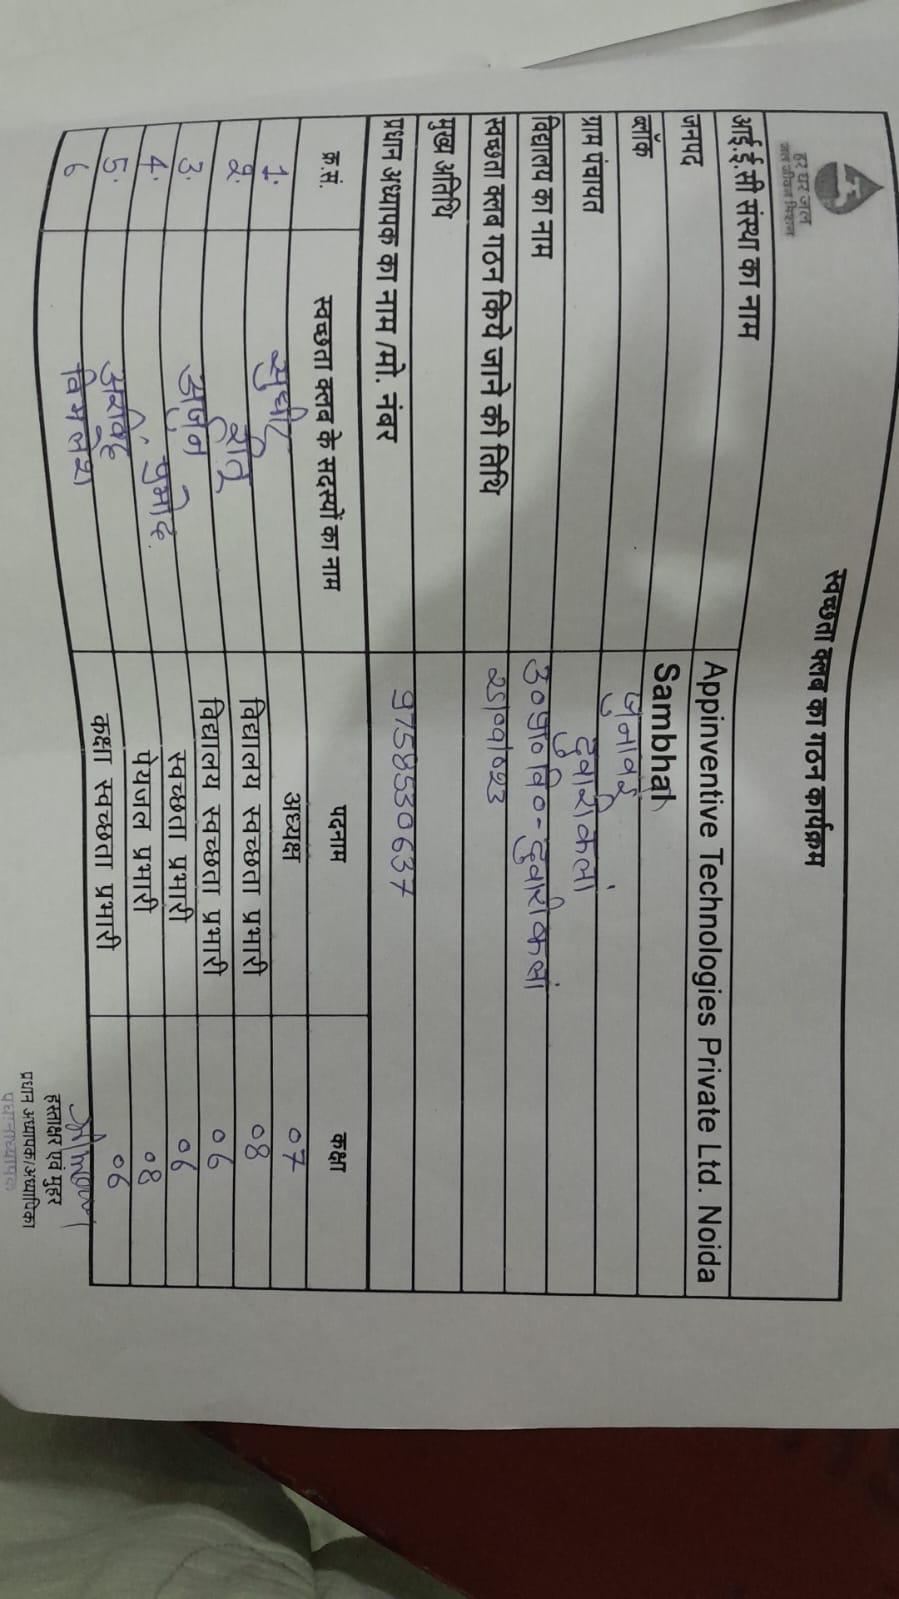 हर घर जल
जल जीवन मिशन
स्वच्छता क्लब का गठन कार्यक्रम
आई.ई.सी संस्था का नाम Appinventive Technologies Private Ltd. Noida
जनपद Sambhal
ब्लॉक जुनावई
ग्राम पंचायत दुवारी कलां
विद्यालय का नाम उ०प्रा०वि०-दुवारी कलां
स्वच्छता क्लब गठन किये जाने की तिथि
मुख्य अतिथि
प्रधान अध्यापक का नाम /मो. नंबर 9758530637
क्र.सं. स्वच्छता क्लब के सदस्यों का नाम पदनाम कक्षा
1. सुधीर अध्यक्ष ०7
2. विद्यालय स्वच्छता प्रभारी ०8
3. अर्जुन विद्यालय स्वच्छता प्रभारी ०6
4. स्वच्छता प्रभारी ०6
5. पेयजल प्रभारी ०8
6 विमलेश कक्षा स्वच्छता प्रभारी ०6
हस्ताक्षर एवं मुहर
प्रधान अध्यापक/अध्यापिका
प्रधानाध्यापक